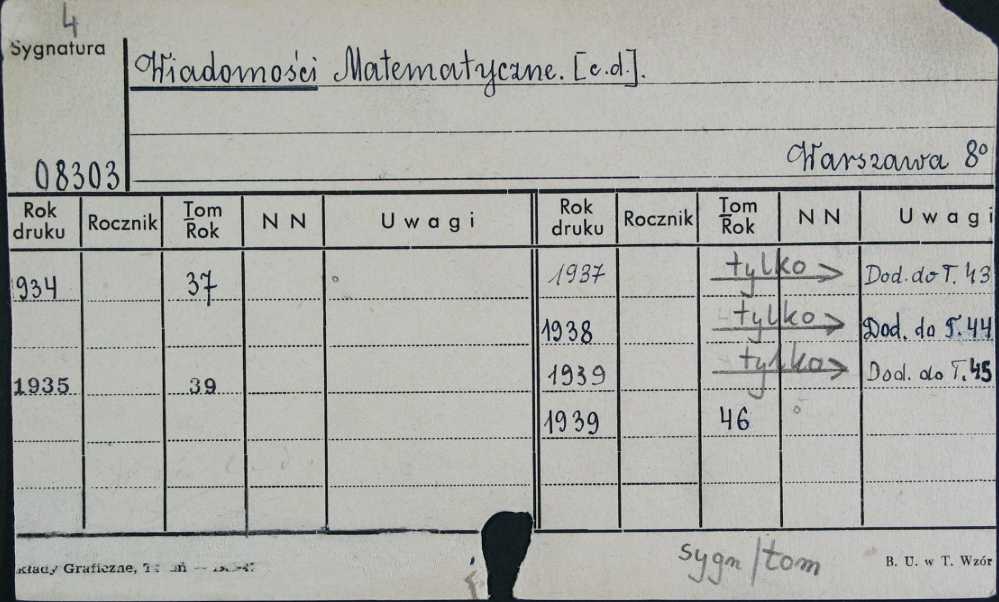 4
Sygnatura
Wiadomości Matematyczne. [c.d.].
08303
Warszawa 8°
Rok druku Rocznik Tom/Rok NN Uwagi Rok druku Rocznik Tom/Rok NN Uwagi
1934 37
1935 39
1937 tylko → Dod. do T. 43
1938 tylko → Dod. do T. 44
1939 tylko → Dod. do T. 45
1939 46
sygn/tom
kłady Graficzne, B. U. w T. Wzór